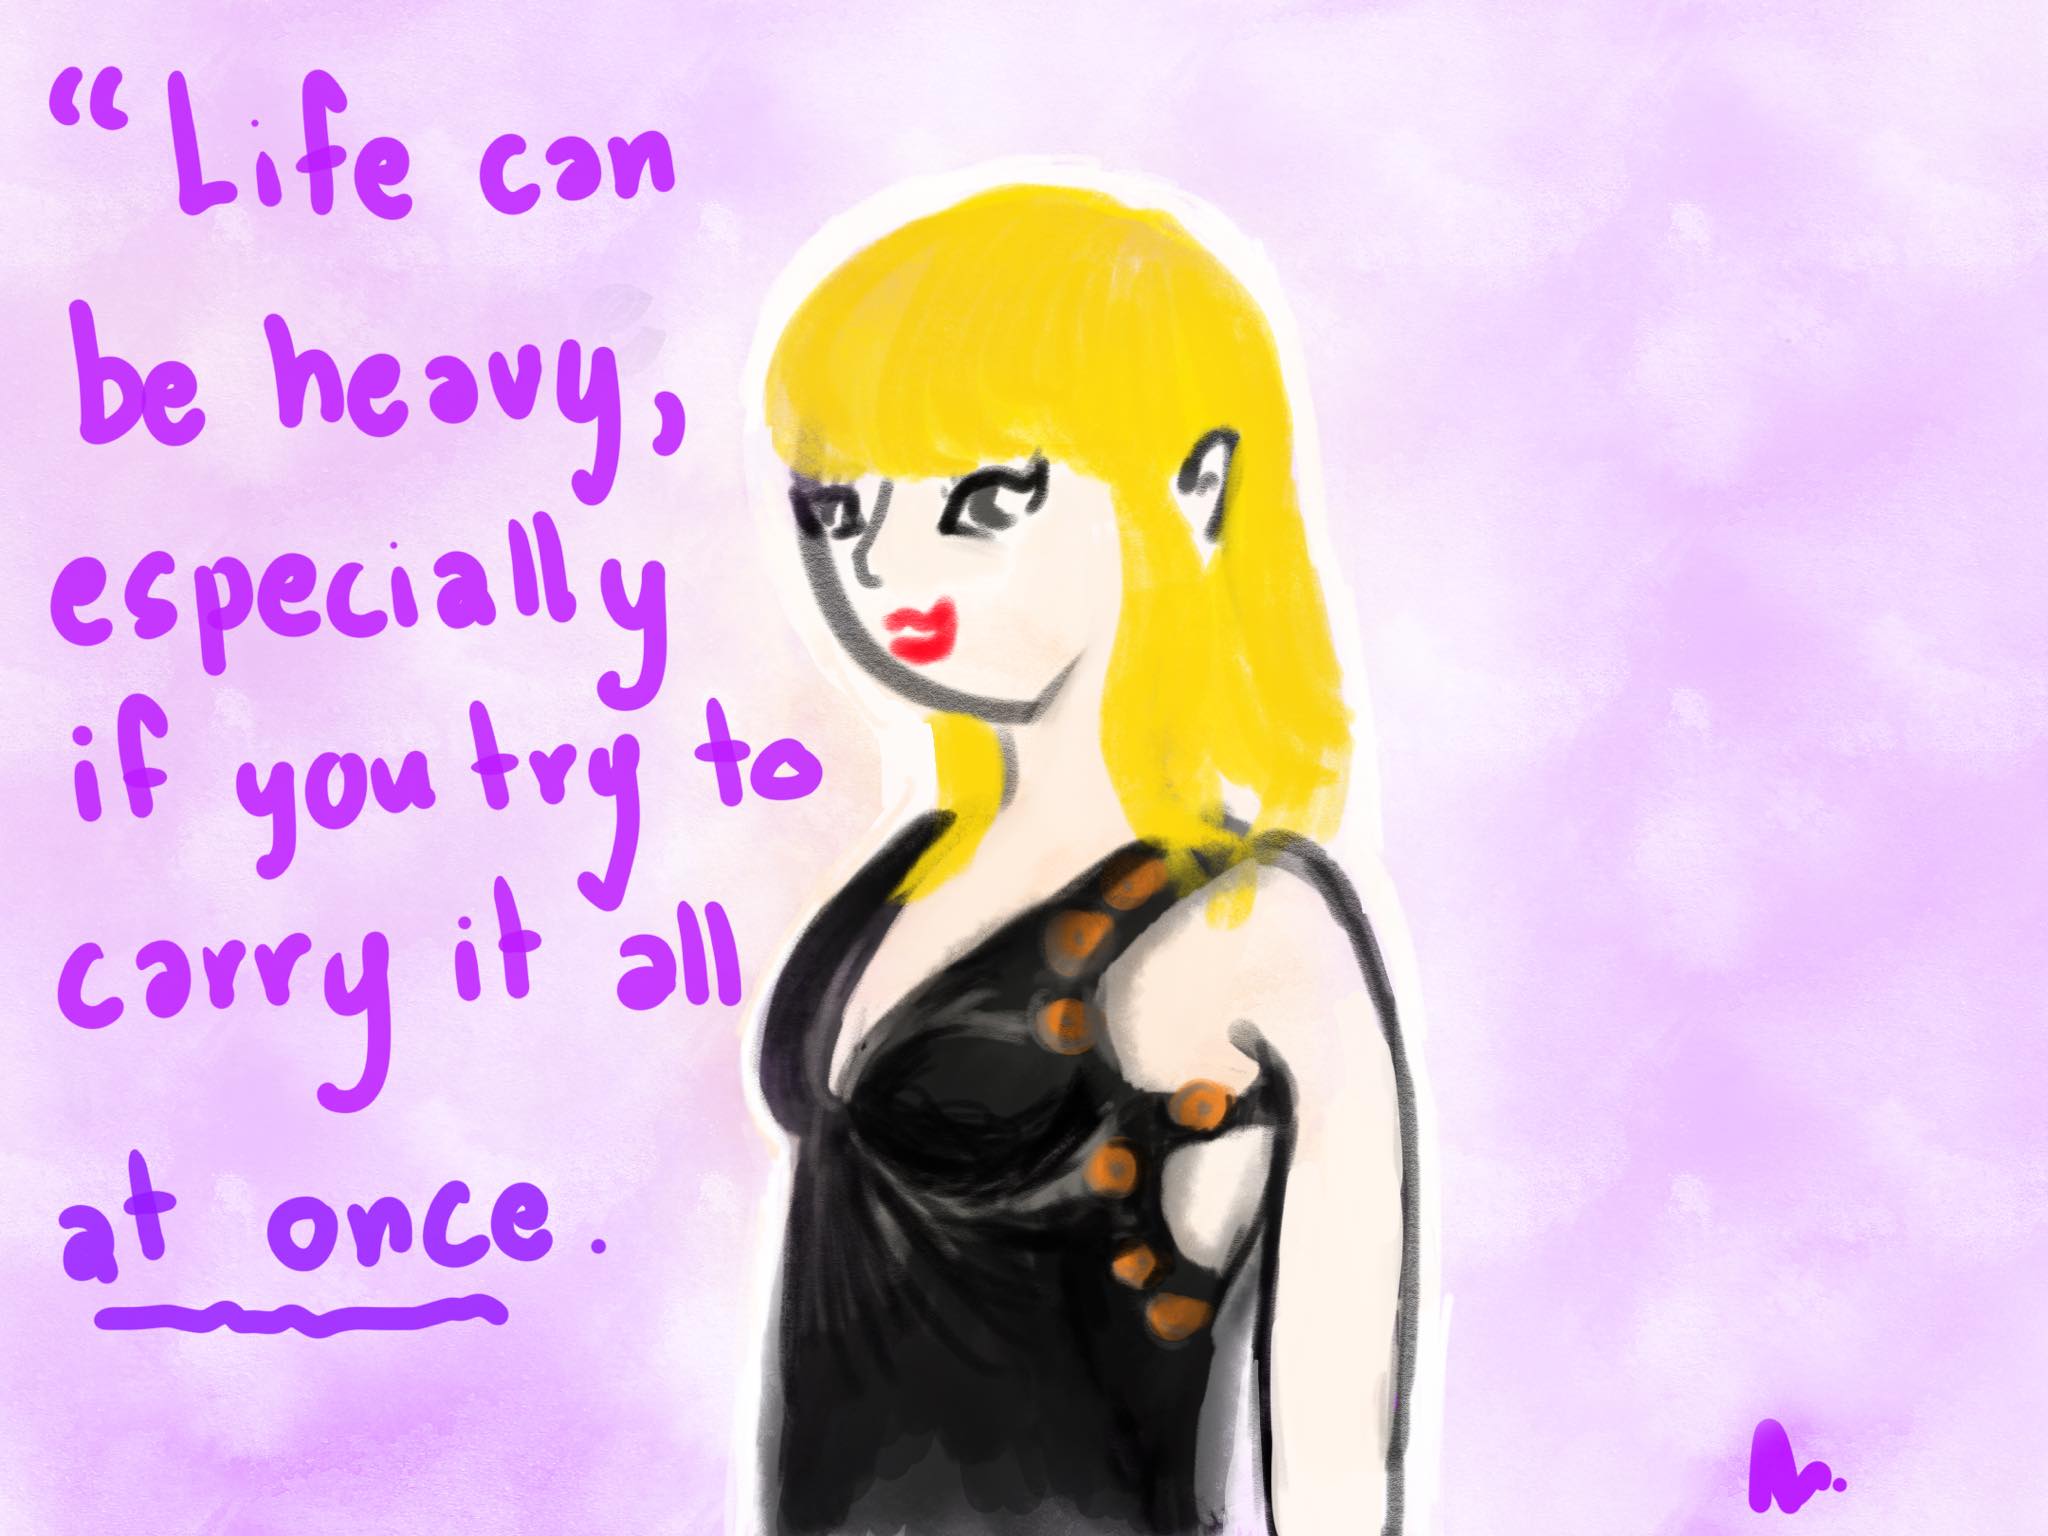 “Life can
be heavy,
especially
if you try to
carry it all
at once.